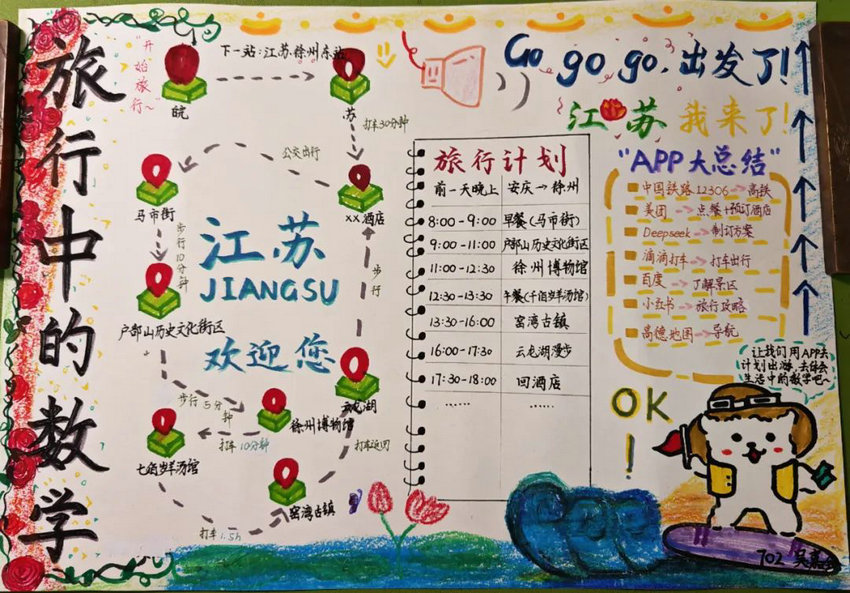 旅行中的数学
"开始旅行~"
下一站:江苏.徐州东站
皖
苏
打车30分钟
公交出行
马市街
xx酒店
步行10分钟
步行
江苏
JIANGSU
欢迎您
户部山历史文化街区
步行5分钟
云龙湖
徐州博物馆
打车10分钟
打车返回
窑湾古镇
打车1.5h
旅行计划
前一天晚上 安庆→徐州
8:00-9:00 早餐(马市街)
9:00-11:00 户部山历史文化街区
11:00-12:30 徐州博物馆
12:30-13:30
13:30-16:00 窑湾古镇
16:00-17:30 云龙湖漫步
17:30-18:00 回酒店
...... ......
Go go go,出发了!
江苏 我来了!
"APP大总结"
中国铁路12306→高铁
美团→点餐+预订酒店
Deepseek→制订方案
滴滴打车→打车出行
百度→了解景区
小红书→旅行攻略
高德地图→导航
让我们用APP去
计划出游,去体会
生活中的数学吧~
OK!
702 吴